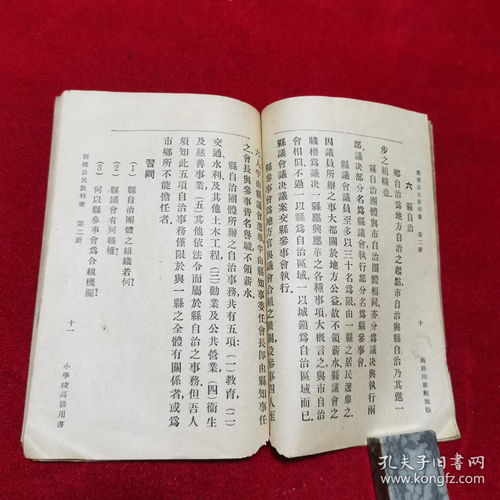 新撰公民教科書 第二冊
六 縣自治
鄉自治為地方自治之起點市自治與縣自治乃其進一
步之組織也
縣自治團體與市自治團體相同亦分為議決與執行兩
部議決部分名為縣議會執行部分名為縣參事會
縣議會議員至多以三十名為限由一縣之居民選舉之
因議員所辦之事大都關於地方公益故不領薪水縣議會之
職權為議決一縣應興應革之各種事項大概言之與市自治
會相似不過一以縣為自治區域一以城鎮為自治區域而已
縣議會議決議案交縣參事會執行
十
商務印書館出版
縣參事會為地方官與議會合組之機關設參事四人至
六人半由縣議會選舉半由縣知事委任會長即由縣知事任
之會長與參事皆名譽職不領薪水
縣自治團體所辦之自治事務共有五項（一）教育（二）
交通水利及其他土木工程（三）勸業及公共營業（四）衛生
及慈善事業（五）其他依法令而屬於縣自治之事務但吾人
須知此五項自治事務僅限於與一縣之全體有關係者或為
市鄉所不能擔任者
習問
（1）縣自治團體之組織若何？
（2）縣議會有何職權？
（3）何以縣參事會為合組機關？
新撰公民教科書 第二冊
十一
小學校高級用書
孔夫子旧书网